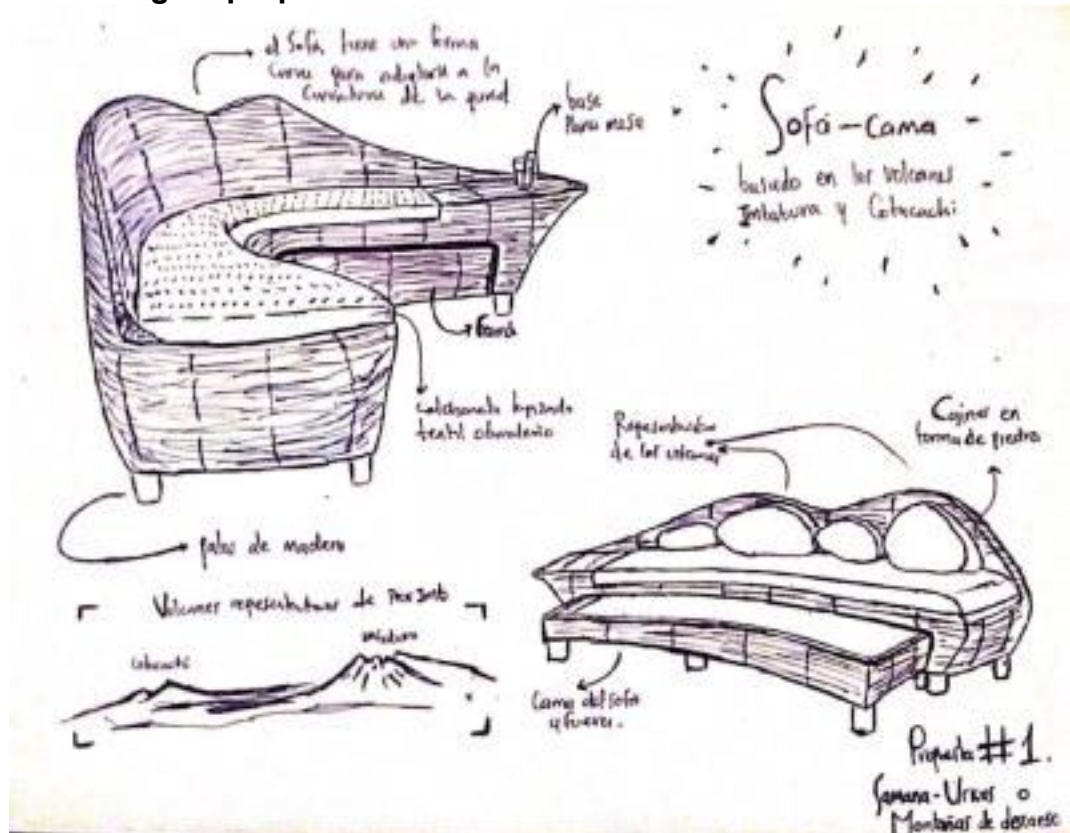 el Sofá tiene una forma
curva para adaptarse a la
curvatura de la pared
base
para mesa
Sofá-cama
basado en los volcanes
Imbabura y Cotacachi
Cama
textil
Representación
de los volcanes
Cojines en
forma de piedra
patas de madera
Volcanes representativos de
Cotacachi
Imbabura
Cama del sofá
afuera.
Propuesta #1.
Samana-Urkus o
Montañas de descanso